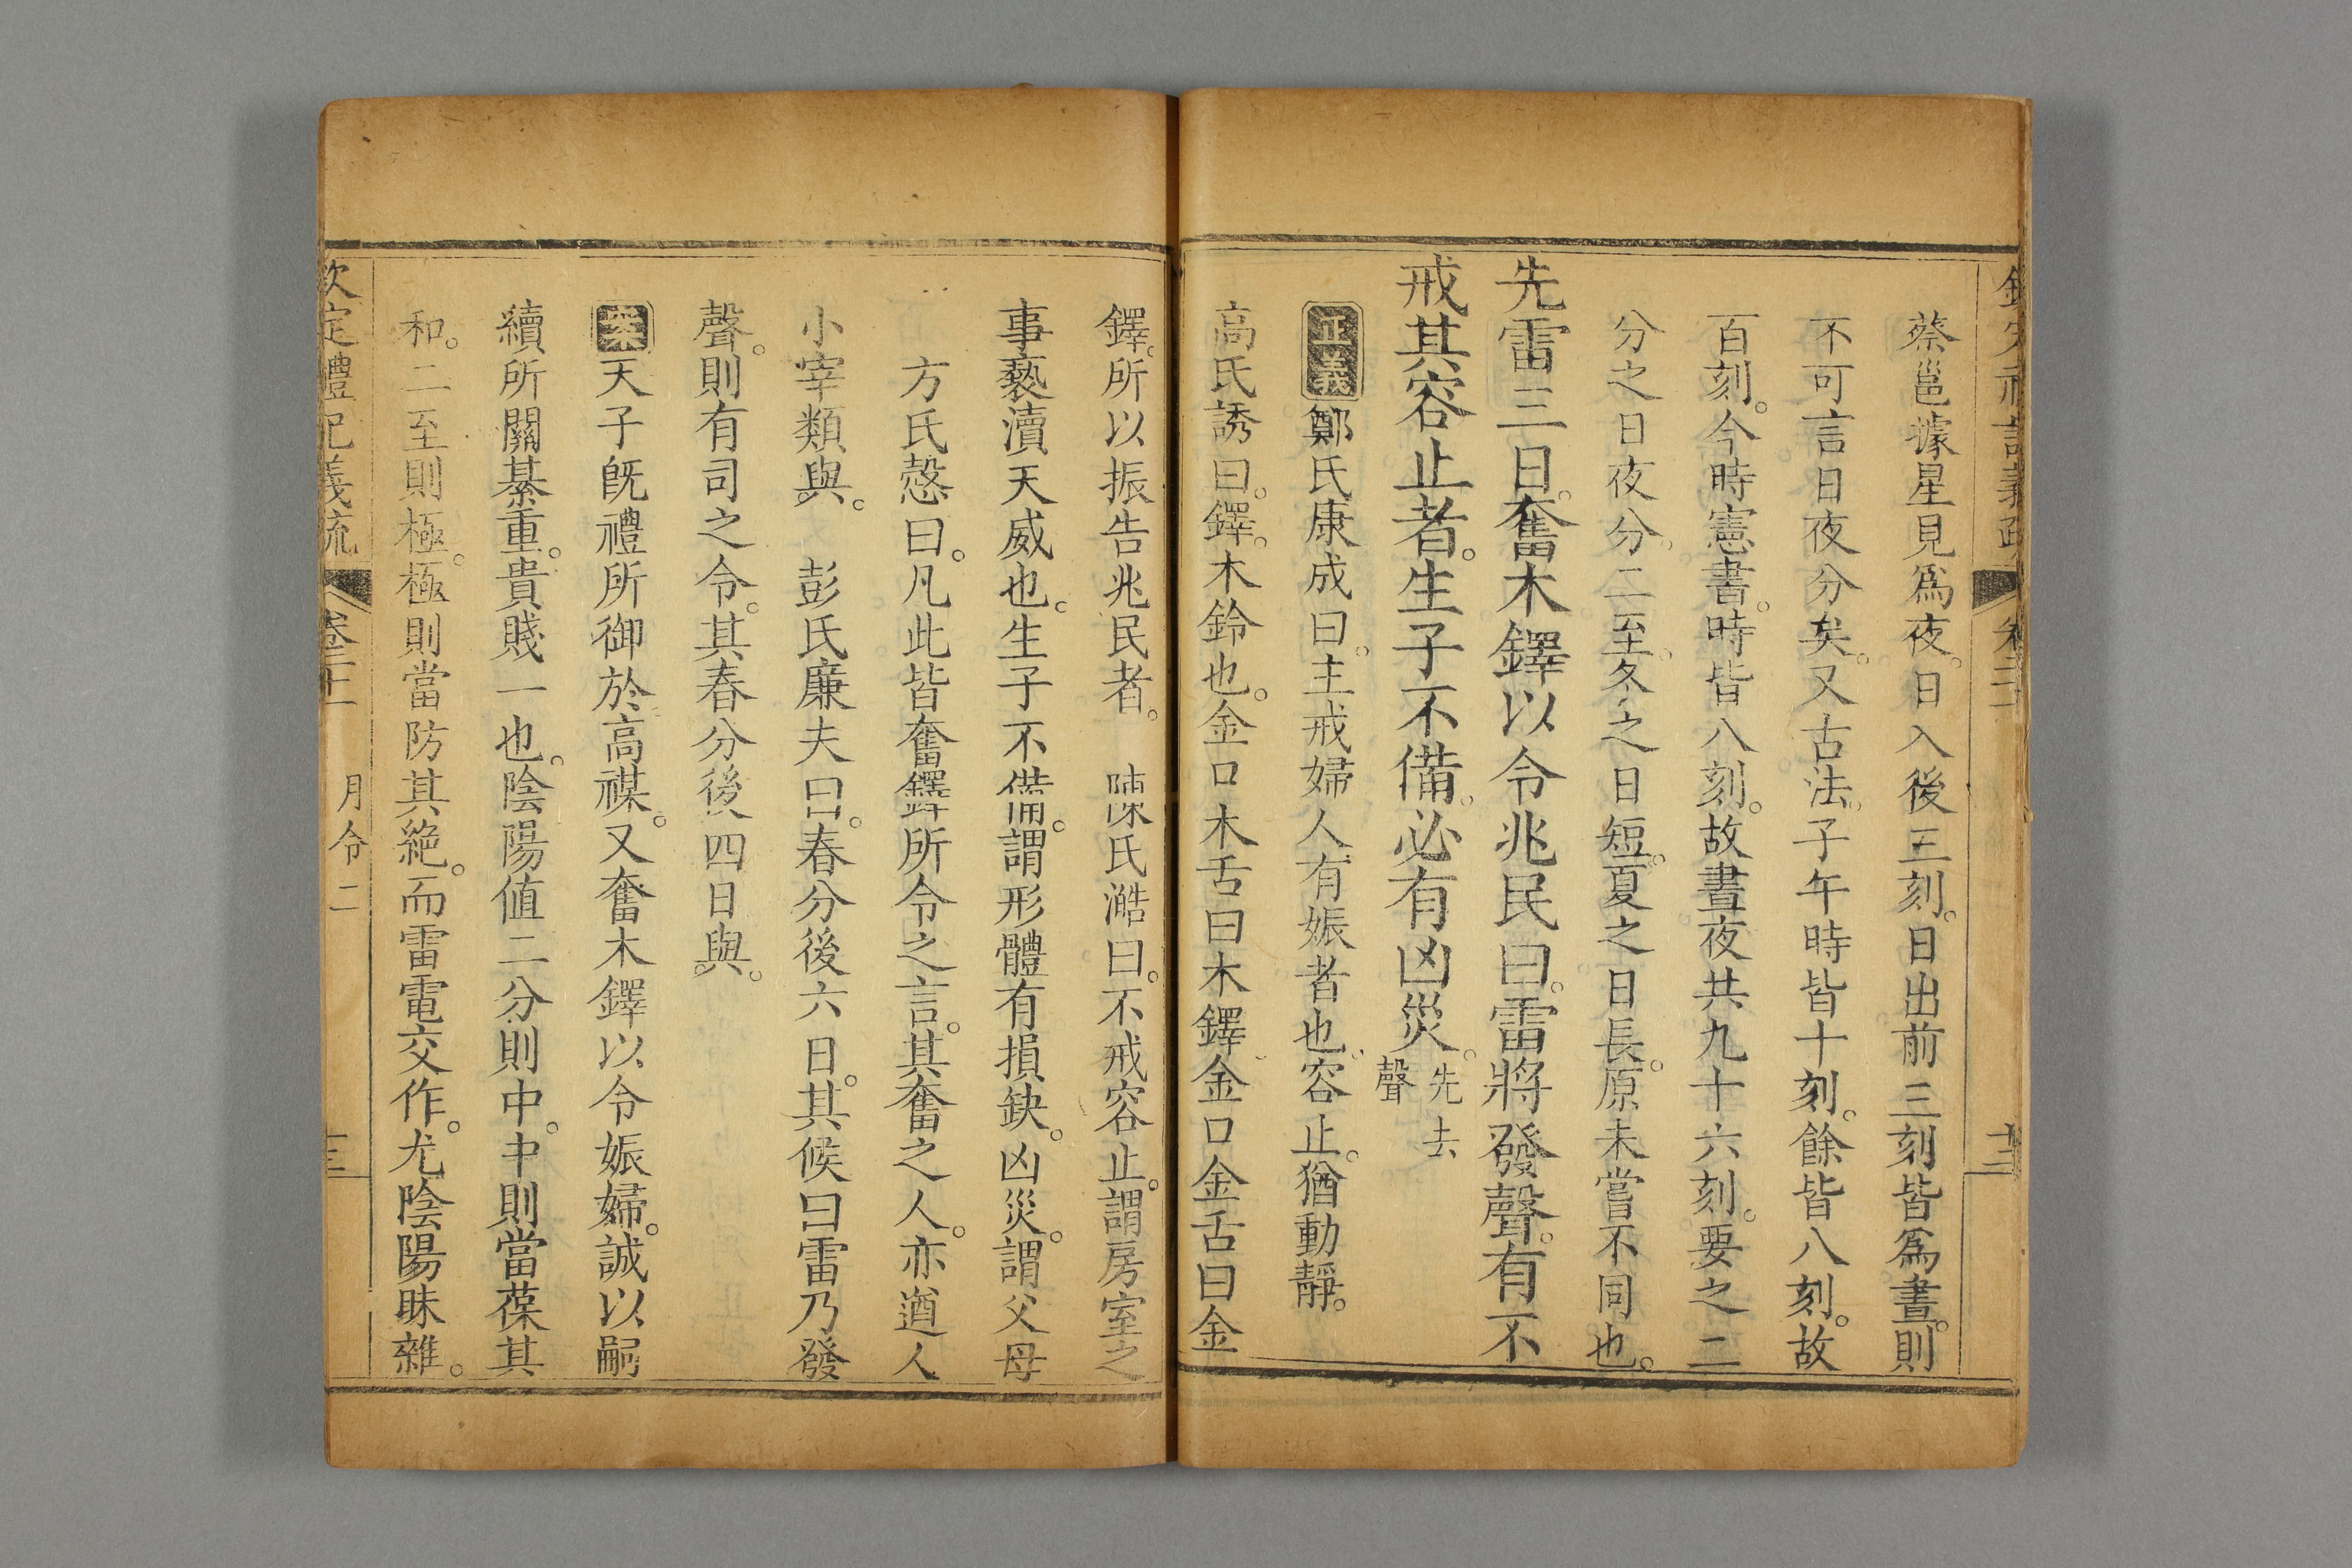 蔡邕據星見爲夜。日入後三刻。日出前三刻皆爲晝。則
不可言日夜分矣。又古法。子午時皆十刻。餘皆八刻。故
百刻。今時憲書。時皆八刻。故晝夜共九十六刻。要之二
分之日夜分。二至。冬之日短。夏之日長。原未嘗不同也。
先雷三日。奮木鐸以令兆民曰。雷將發聲。有不
戒其容止者。生子不備。必有凶災。先去
聲
正義鄭氏康成曰。主戒婦人有娠者也。容止。猶動靜。
高氏誘曰。鐸。木鈴也。金口木舌曰木鐸。金口金舌曰金
鐸。所以振告兆民者。 陳氏澔曰。不戒容止。謂房室之
事褻瀆天威也。生子不備。謂形體有損缺。凶災。謂父母
方氏慤曰。凡此皆奮鐸所令之言。其奮之人。亦遒人
小宰類與。 彭氏廉夫曰。春分後六日。其候曰雷乃發
聲。則有司之令。其春分後四日與。
案天子既禮所御於高禖。又奮木鐸以令娠婦。誠以嗣
續所關綦重。貴賤一也。陰陽值二分則中。中則當葆其
和。二至則極。極則當防其絶。而雷電交作。尤陰陽昧雜。
欽定禮記義疏 卷二十 月令二